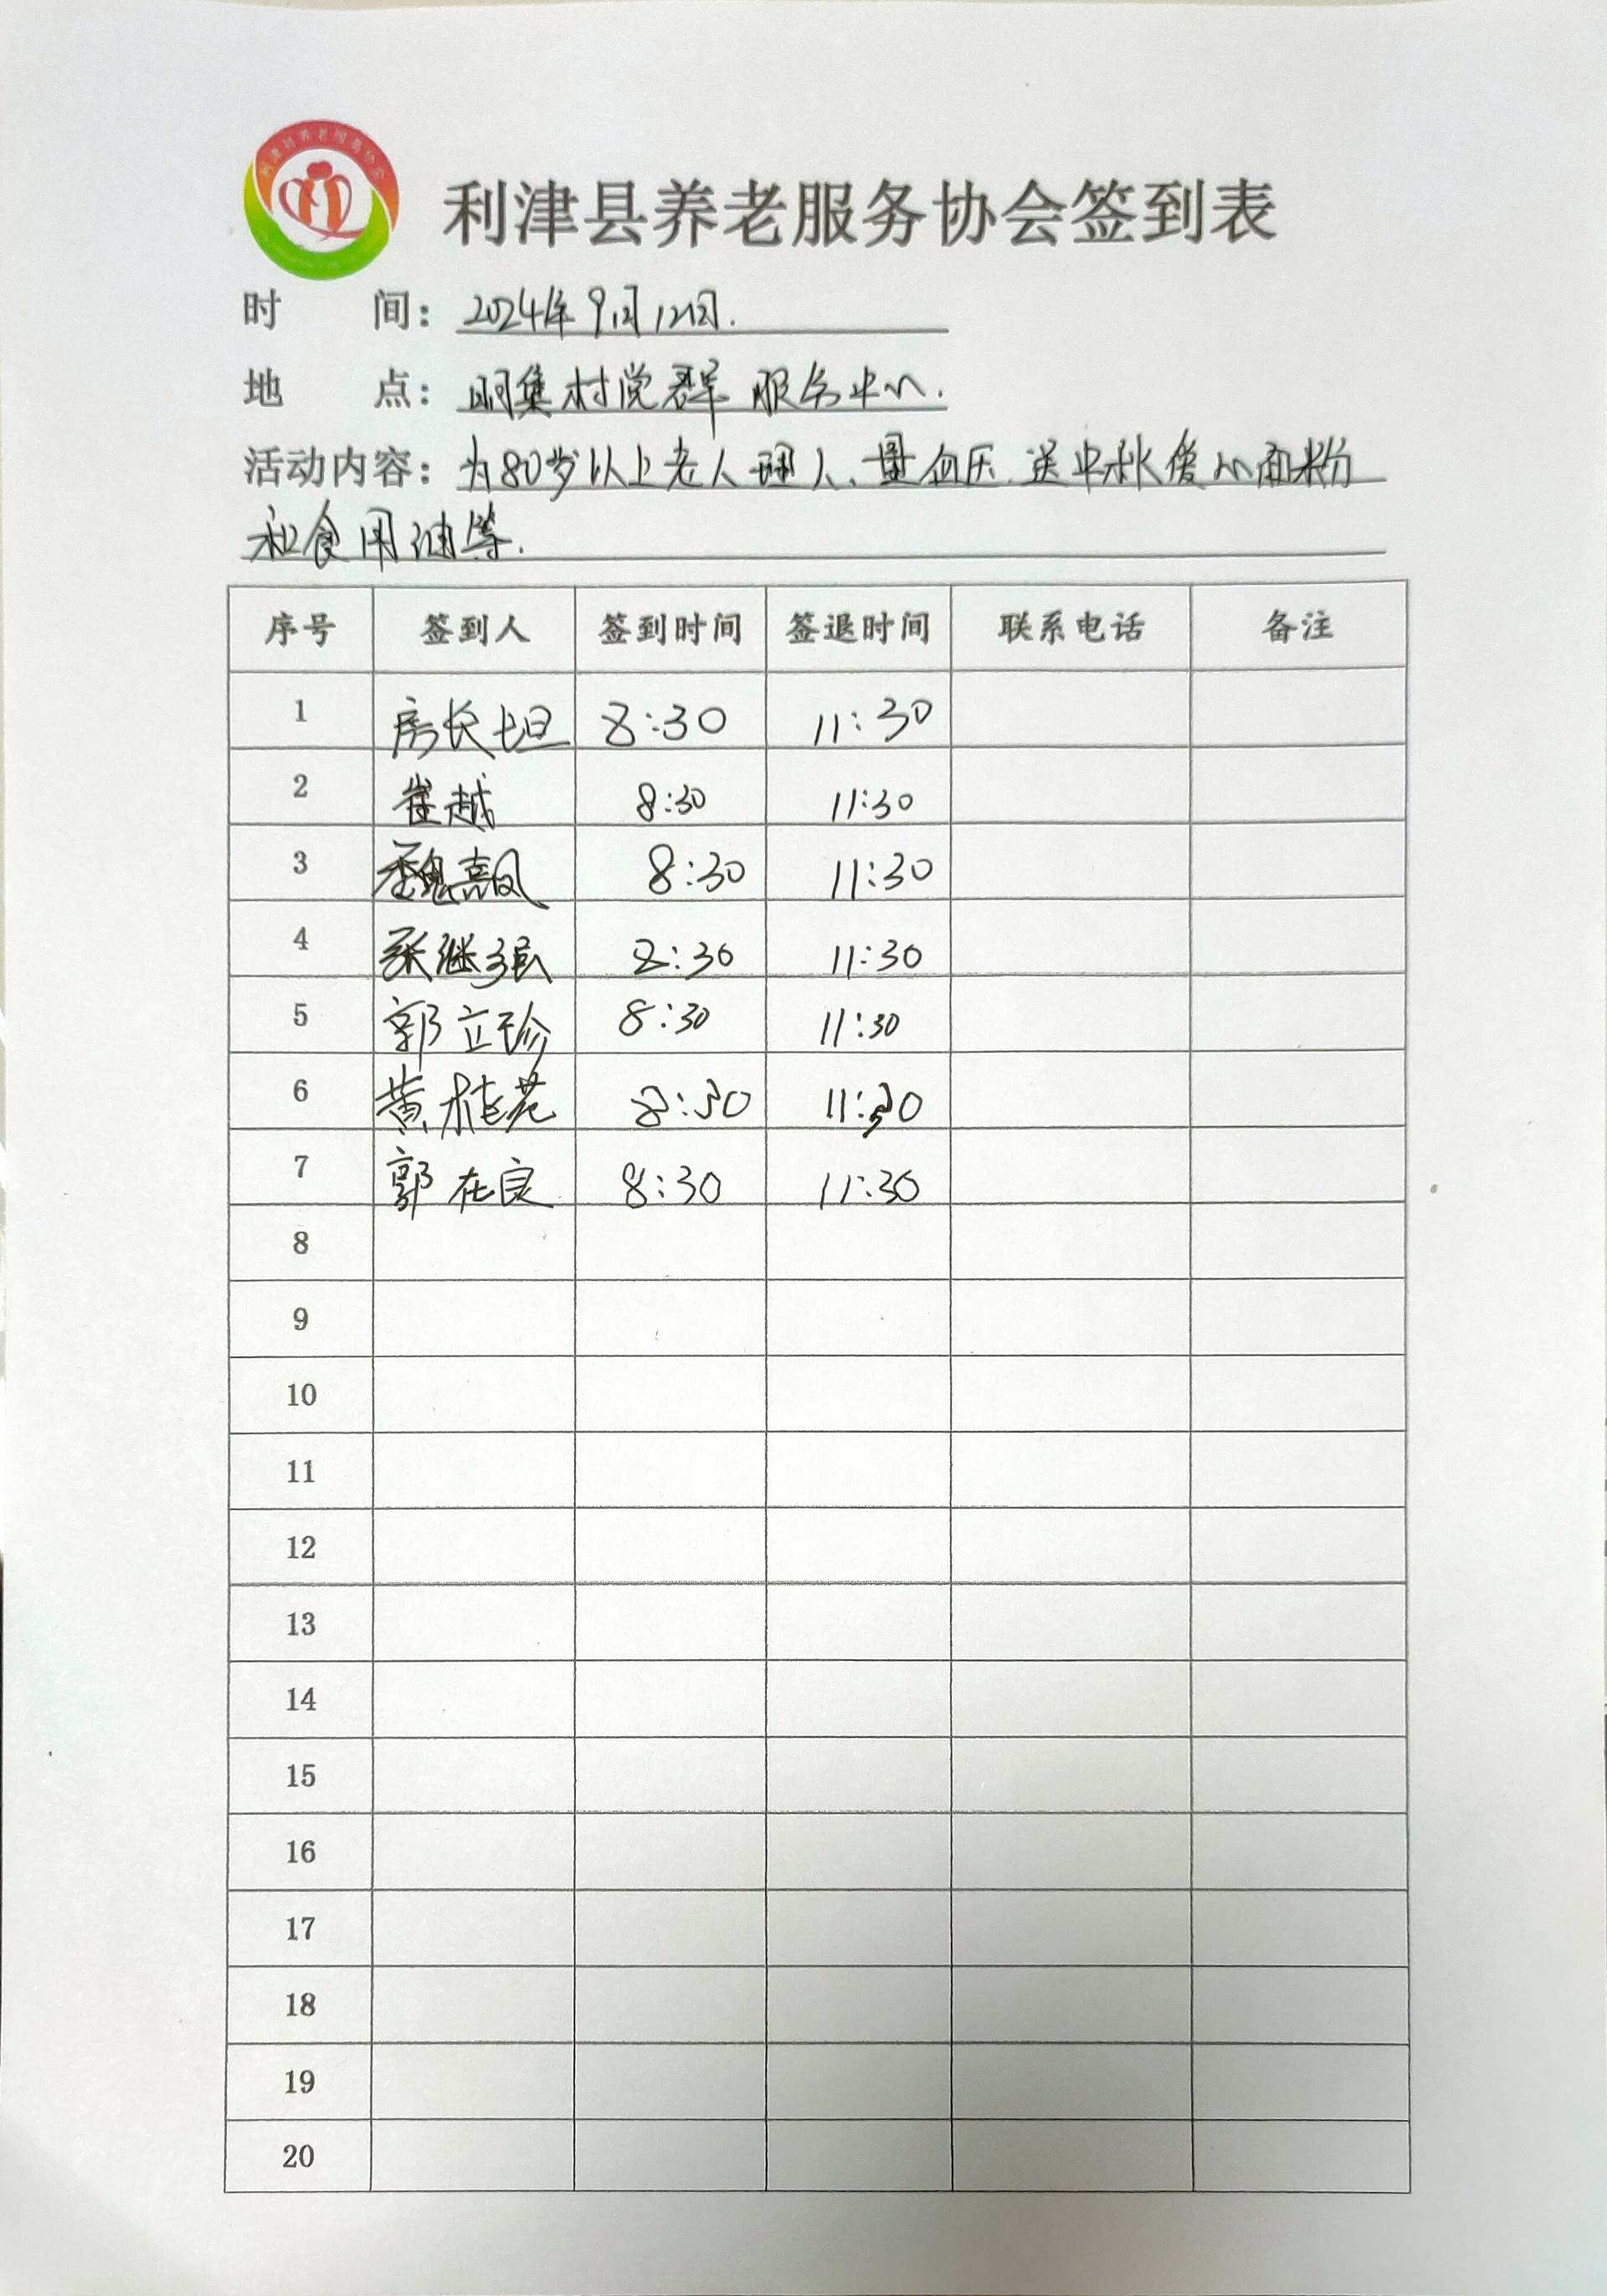 利津县养老服务协会
利津县养老服务协会签到表
时 间: 2024年9月12日.
地 点: 明集村党群服务中心.
活动内容: 为80岁以上老人理人、量血压.送中秋爱心面粉
和食用油等.
序号 签到人 签到时间 签退时间 联系电话 备注
1 房长坦 8:30 11:30
2 崔越 8:30 11:30
3 魏嘉凤 8:30 11:30
4 张继强 8:30 11:30
5 郭立珍 8:30 11:30
6 黄桂花 8:30 11:30
7 郭在良 8:30 11:30
8
9
10
11
12
13
14
15
16
17
18
19
20